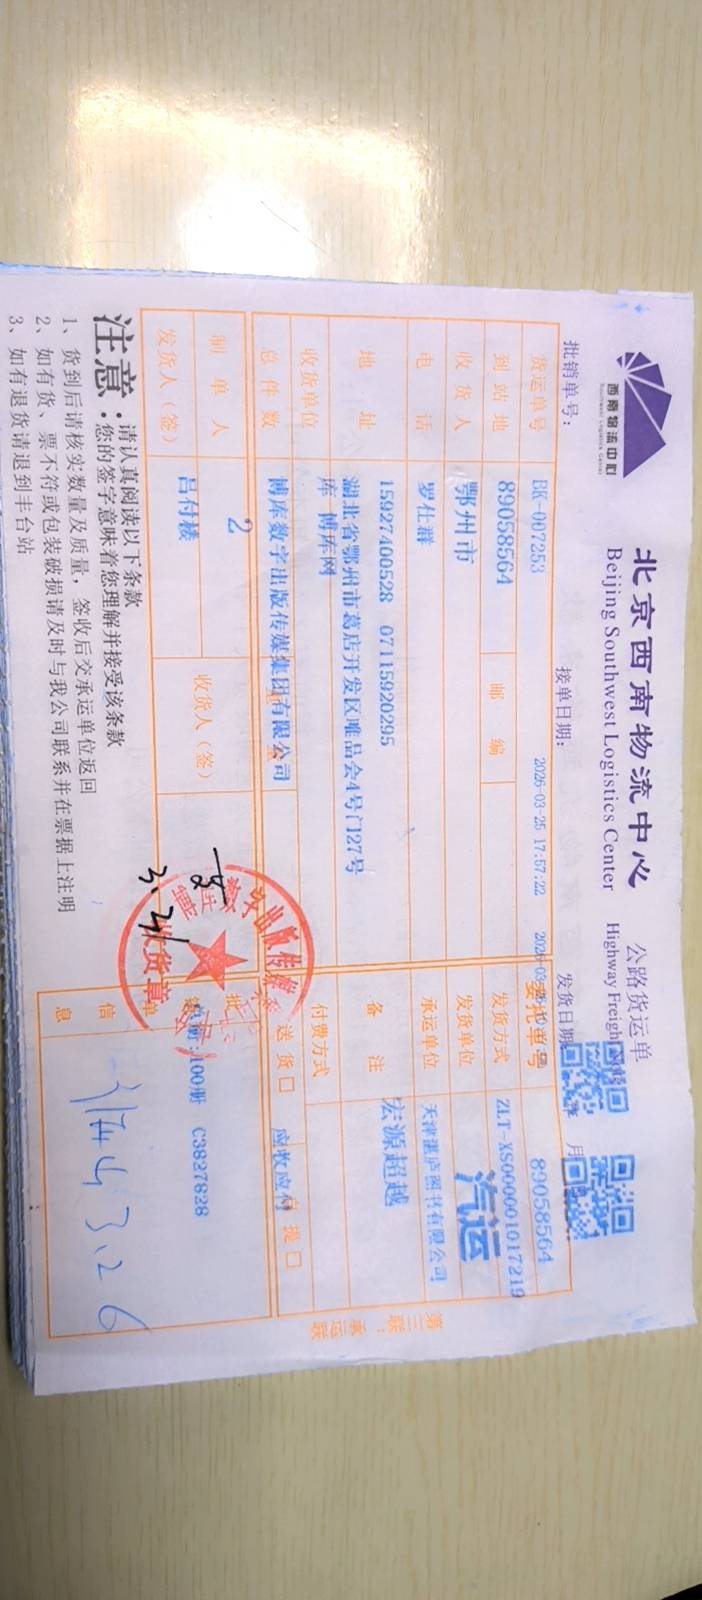 西南物流中心
Southwest Logistics Center
北京西南物流中心
Beijing Southwest Logistics Center
公路货运单
Highway Freigh
批销单号:
接单日期:
发货日期
年
月
BK-007253
2026-03-25 17:57:22
货运单号
89058564
委托单号
89058564
到站地
鄂州市
邮编
发货方式
ZLT-XS000001017219
收货人
罗仕群
发货单位
汽运
电话
15927400528 07115920295
承运单位
天津湛庐图书有限公司
地址
湖北省鄂州市葛店开发区唯品会4号门27号
库 博库网
备注
宏源超越
收货单位
博库数字出版传媒集团有限公司
付费方式
总件数
2
送货口
应收应付
自提口
制单人
吕付楼
收货人(签)
单册:100册 C3827828
发货人(签)
信息
收货章
3.26
第三联:承运联
注意:
请认真阅读以下条款
您的签字意味着您理解并接受该条款
1、货到后请核实数量及质量,签收后交承运单位返回
2、如有货、票不符或包装破损请及时与我公司联系并在票据上注明
3、如有退货请退到丰台站